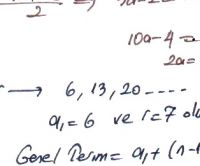 2
10a-4=
2a=
→ 6, 13, 20 ....
a₁=6 ve r=7
Genel Terim= a₁+(n-